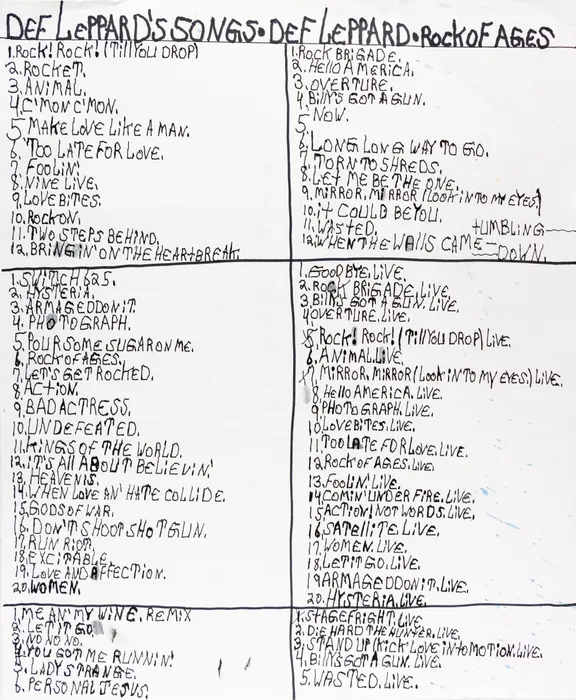 DEF LEPPARD'S SONGS • DEF LEPPARD • ROCK OF AGES
1. ROCK! ROCK! (TILL YOU DROP)
2. ROCKET.
3. ANIMAL.
4. C'MON C'MON.
5 MAKE LOVE LIKE A MAN.
6. TOO LATE FOR LOVE.
7. FOOLIN'
8. NINE LIVE.
9. LOVE BITES.
10. ROCK ON.
11. TWO STEPS BEHIND.
12. BRINGIN' ON THE HEARTBREAK.
1. ROCK BRIGADE.
2. HELLO AMERICA.
3. OVERTURE.
4. BILLY'S GOT A GUN.
5. NOW.
6. LONG LONG WAY TO GO.
7. TORN TO SHREDS.
8. LET ME BE THE ONE.
9. MIRROR, MIRROR (LOOK INTO MY EYES)
10. IT COULD BE YOU.
11. WASTED.
12. WHEN THE WALLS CAME TUMBLING DOWN.
1. SWITCH 625.
2. HYSTERIA.
3. ARMAGEDDON IT.
4. PHOTOGRAPH.
5. POUR SOME SUGAR ON ME.
6. ROCK OF AGES.
7. LET'S GET ROCKED.
8. ACTION.
9. BAD ACTRESS.
10. UNDEFEATED.
11. KINGS OF THE WORLD.
12. IT'S ALL ABOUT BELIEVIN'
13. HEAVEN IS.
14. WHEN LOVE AN' HATE COLLIDE.
15. GODS OF WAR.
16. DON'T SHOOT SHOTGUN.
17. RUN RIOT.
18. EXCITABLE.
19. LOVE AND AFFECTION.
20. WOMEN.
1. GOODBYE. LIVE.
2. ROCK BRIGADE. LIVE.
3. BILLY'S GOT A GUN. LIVE.
4 OVERTURE. LIVE.
5. ROCK! ROCK! (TILL YOU DROP) LIVE.
6. ANIMAL. LIVE.
7. MIRROR, MIRROR (LOOK INTO MY EYES.) LIVE.
8. HELLO AMERICA. LIVE.
9 PHOTOGRAPH. LIVE.
10 LOVE BITES. LIVE.
11. TOO LATE FOR LOVE. LIVE.
12 ROCK OF AGES. LIVE.
13. FOOLIN'. LIVE.
14 COMIN' UNDER FIRE. LIVE.
15 ACTION! NOT WORDS. LIVE.
16 SATELLITE. LIVE.
17. WOMEN. LIVE.
18. LET IT GO. LIVE.
19 ARMAGEDDON IT. LIVE.
20. HYSTERIA. LIVE.
1. ME AN' MY WINE. REMIX
2. LET IT GO.
3. NO NO NO.
4. YOU GOT ME RUNNIN'
5. LADY STRANGE.
6. PERSONAL JESUS.
1. STAGEFRIGHT. LIVE.
2. DIE HARD THE HUNTER. LIVE.
3. STAND UP (KICK LOVE INTO MOTION. LIVE.
4. BILLY'S GOT A GUN. LIVE.
5. WASTED. LIVE.